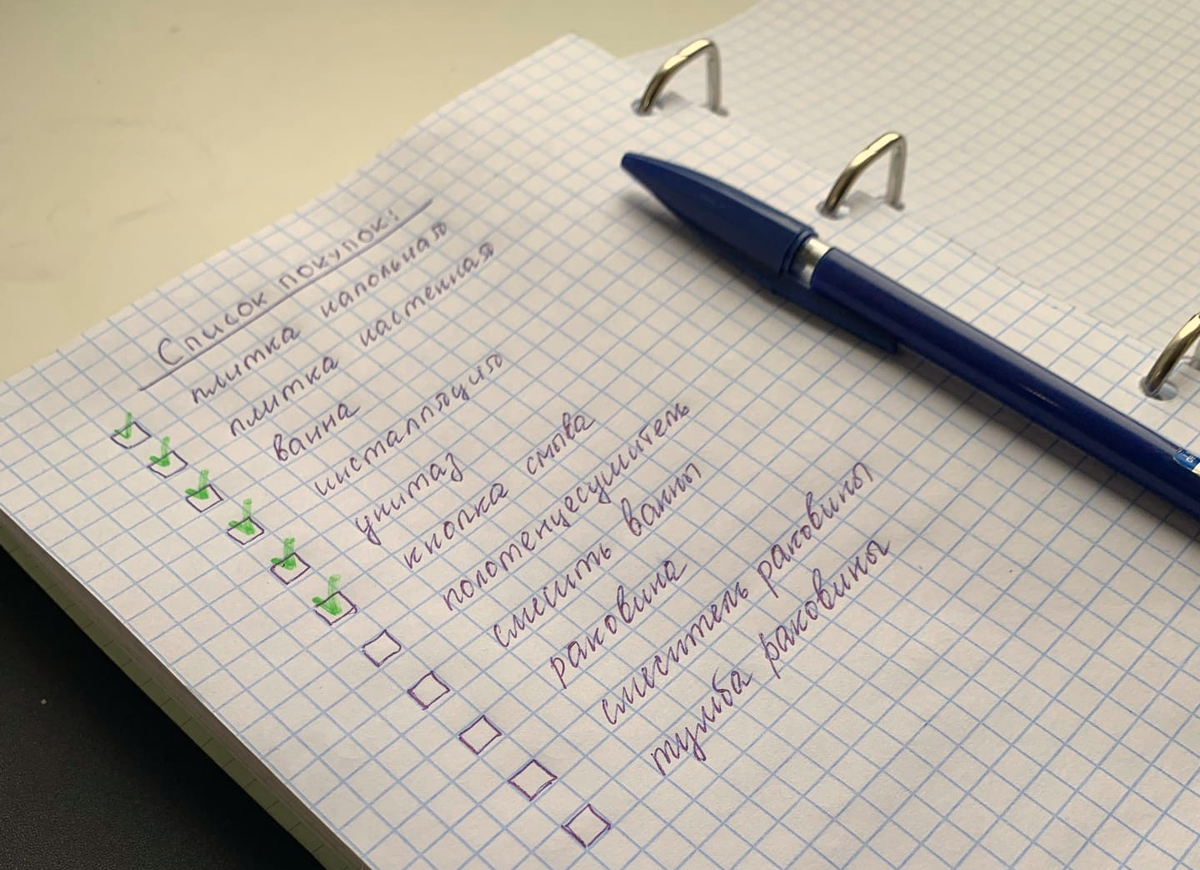 Список покупок:
плитка напольная
плитка настенная
ванна
инсталляция
унитаз
кнопка смыва
полотенцесушитель
смесить ванны
раковина
смеситель раковины
тумба раковины